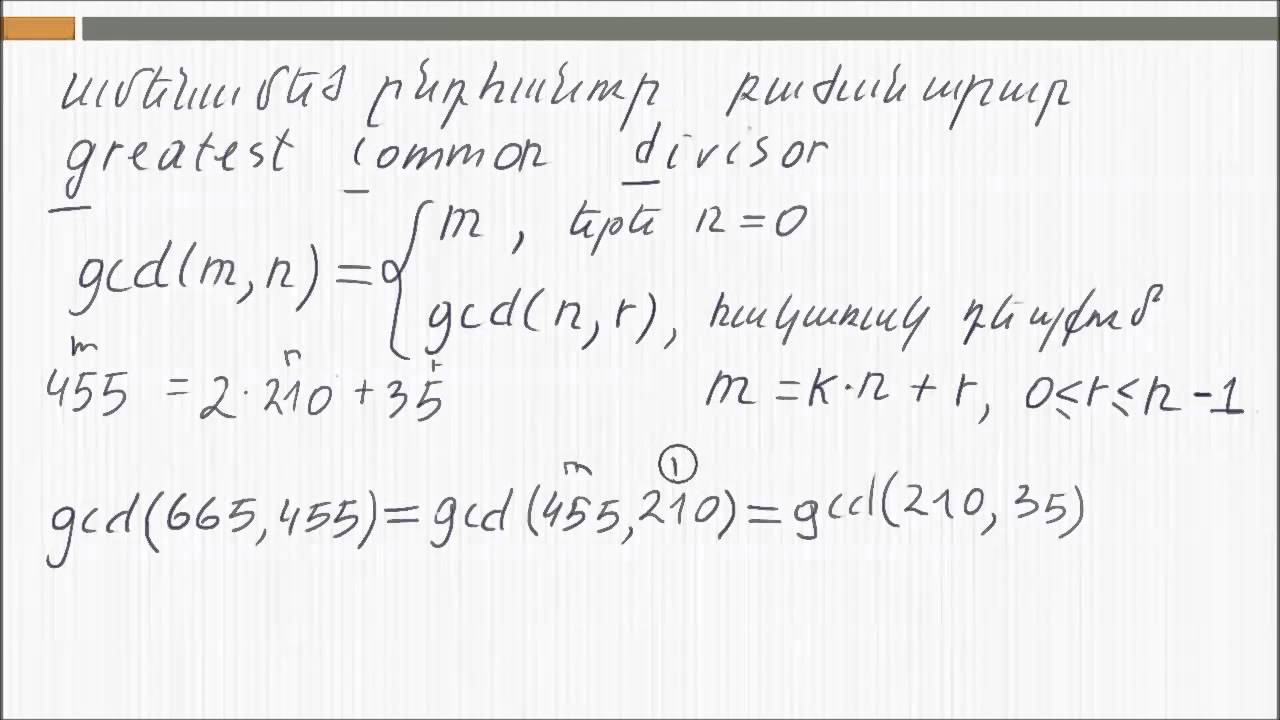 ամենամեծ ընդհանուր բաժանարար
greatest common divisor
gcd(m,n) = { m , եթե n = 0
gcd(n,r), հակառակ դեպքում
m n r
455 = 2·210 + 35 m = k·n + r, 0≤r≤n-1
m n
gcd(665,455) = gcd(455,210) = gcd(210,35)